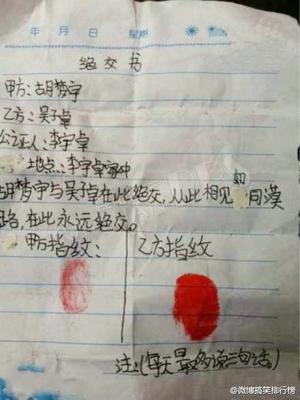 年 月 日
绝交书
甲方:胡梦宇
乙方:吴子卓
公证人:李宇卓
地点:李宇卓家中
胡梦宇与吴子卓在此绝交,从此相见如同漠
路,在此永远绝交。
甲方指纹: 乙方指纹
注:(每天最多说三句话。)
@微博搞笑排行榜